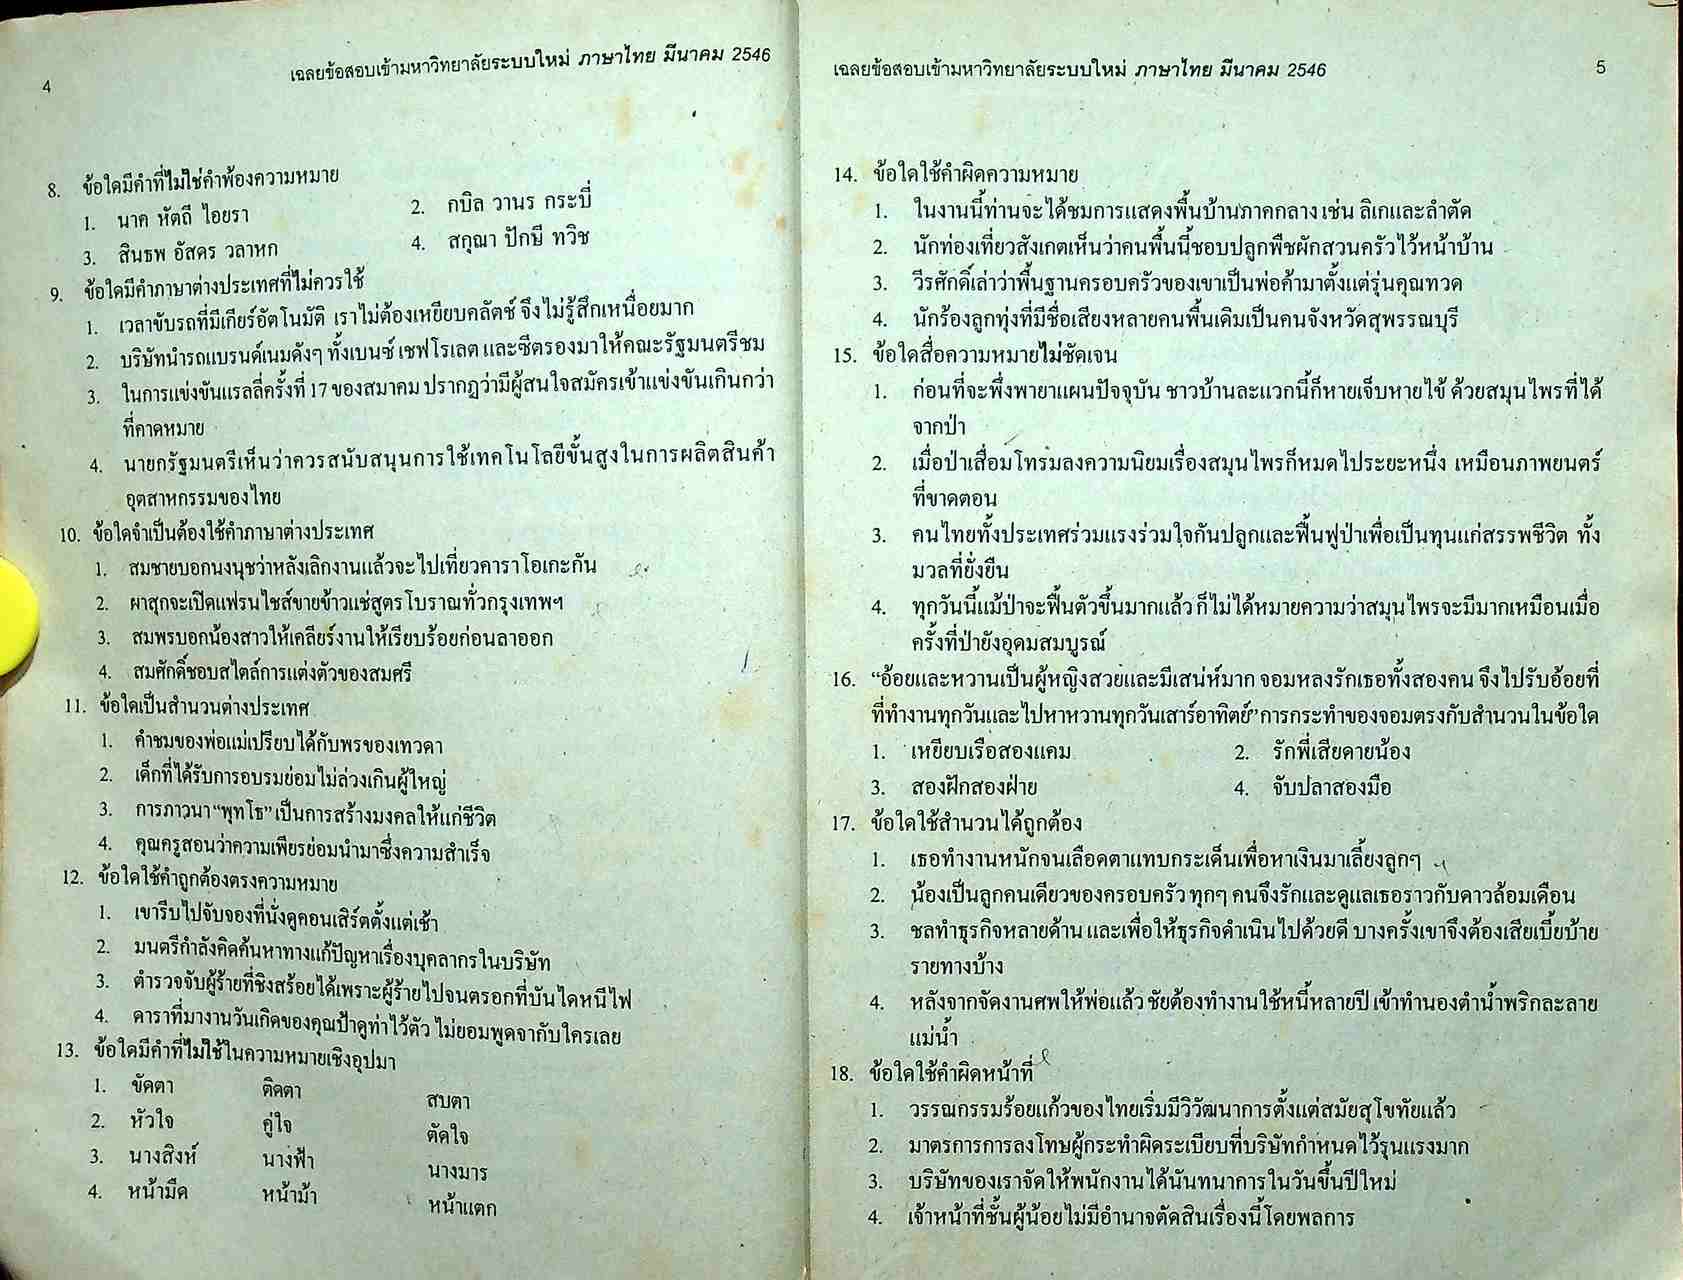 4
เฉลยข้อสอบเข้ามหาวิทยาลัยระบบใหม่ ภาษาไทย มีนาคม 2546
8. ข้อใดมีคำที่ไม่ใช่คำพ้องความหมาย
1. นาค หัตถี ไอยรา 2. กบิล วานร กระบี่
3. สินธพ อัสดร วลาหก 4. สกุณา ปักษี ทวิช
9. ข้อใดมีคำภาษาต่างประเทศที่ไม่ควรใช้
1. เวลาขับรถที่มีเกียร์อัตโนมัติ เราไม่ต้องเหยียบคลัตช์ จึงไม่รู้สึกเหนื่อยมาก
2. บริษัทนำรถแบรนด์เนมดังๆ ทั้งเบนซ์ เชฟโรเลต และซีตรองมาให้คณะรัฐมนตรีชม
3. ในการแข่งขันแรลลี่ครั้งที่ 17 ของสมาคม ปรากฏว่ามีผู้สนใจสมัครเข้าแข่งขันเกินกว่า
ที่คาดหมาย
4. นายกรัฐมนตรีเห็นว่าควรสนับสนุนการใช้เทคโนโลยีขั้นสูงในการผลิตสินค้า
อุตสาหกรรมของไทย
10. ข้อใดจำเป็นต้องใช้คำภาษาต่างประเทศ
1. สมชายบอกนงนุชว่าหลังเลิกงานแล้วจะไปเที่ยวคาราโอเกะกัน
2. ผาสุกจะเปิดแฟรนไชส์ขายข้าวแช่สูตรโบราณทั่วกรุงเทพฯ
3. สมพรบอกน้องสาวให้เคลียร์งานให้เรียบร้อยก่อนลาออก
4. สมศักดิ์ชอบสไตล์การแต่งตัวของสมศรี
11. ข้อใดเป็นสำนวนต่างประเทศ
1. คำชมของพ่อแม่เปรียบได้กับพรของเทวดา
2. เด็กที่ได้รับการอบรมย่อมไม่ล่วงเกินผู้ใหญ่
3. การภาวนา “พุทโธ” เป็นการสร้างมงคลให้แก่ชีวิต
4. คุณครูสอนว่าความเพียรย่อมนำมาซึ่งความสำเร็จ
12. ข้อใดใช้คำถูกต้องตรงความหมาย
1. เขารีบไปจับจองที่นั่งดูคอนเสิร์ตตั้งแต่เช้า
2. มนตรีกำลังคิดค้นหาทางแก้ปัญหาเรื่องบุคลากรในบริษัท
3. ตำรวจจับผู้ร้ายที่ชิงสร้อยได้เพราะผู้ร้ายไปจนตรอกที่บันไดหนีไฟ
4. ดาราที่มางานวันเกิดของคุณป้าดูท่าไว้ตัว ไม่ยอมพูดจากับใครเลย
13. ข้อใดมีคำที่ไม่ใช้ในความหมายเชิงอุปมา
1. ขัดตา ติดตา สบตา
2. หัวใจ คู่ใจ ตัดใจ
3. นางสิงห์ นางฟ้า นางมาร
4. หน้ามืด หน้าม้า หน้าแตก
เฉลยข้อสอบเข้ามหาวิทยาลัยระบบใหม่ ภาษาไทย มีนาคม 2546
5
14. ข้อใดใช้คำผิดความหมาย
1. ในงานนี้ท่านจะได้ชมการแสดงพื้นบ้านภาคกลาง เช่น ลิเกและลำตัด
2. นักท่องเที่ยวสังเกตเห็นว่าคนพื้นนี้ชอบปลูกพืชผักสวนครัวไว้หน้าบ้าน
3. วีรศักดิ์เล่าว่าพื้นฐานครอบครัวของเขาเป็นพ่อค้ามาตั้งแต่รุ่นคุณทวด
4. นักร้องลูกทุ่งที่มีชื่อเสียงหลายคนพื้นเดิมเป็นคนจังหวัดสุพรรณบุรี
15. ข้อใดสื่อความหมายไม่ชัดเจน
1. ก่อนที่จะพึ่งพายาแผนปัจจุบัน ชาวบ้านละแวกนี้ก็หายเจ็บหายไข้ ด้วยสมุนไพรที่ได้
จากป่า
2. เมื่อป่าเสื่อมโทรมลงความนิยมเรื่องสมุนไพรก็หมดไประยะหนึ่ง เหมือนภาพยนตร์
ที่ขาดตอน
3. คนไทยทั้งประเทศร่วมแรงร่วมใจกันปลูกและฟื้นฟูป่าเพื่อเป็นทุนแก่สรรพชีวิต ทั้ง
มวลที่ยั่งยืน
4. ทุกวันนี้แม้ป่าจะฟื้นตัวขึ้นมากแล้ว ก็ไม่ได้หมายความว่าสมุนไพรจะมีมากเหมือนเมื่อ
ครั้งที่ป่ายังอุดมสมบูรณ์
16. “อ้อยและหวานเป็นผู้หญิงสวยและมีเสน่ห์มาก จอมหลงรักเธอทั้งสองคน จึงไปรับอ้อยที่
ที่ทำงานทุกวันและไปหาหวานทุกวันเสาร์อาทิตย์” การกระทำของจอมตรงกับสำนวนในข้อใด
1. เหยียบเรือสองแคม 2. รักพี่เสียดายน้อง
3. สองฝักสองฝ่าย 4. จับปลาสองมือ
17. ข้อใดใช้สำนวนได้ถูกต้อง
1. เธอทำงานหนักจนเลือดตาแทบกระเด็นเพื่อหาเงินมาเลี้ยงลูกๆ
2. น้องเป็นลูกคนเดียวของครอบครัว ทุกๆ คนจึงรักและดูแลเธอราวกับดาวล้อมเดือน
3. ชลทำธุรกิจหลายด้าน และเพื่อให้ธุรกิจดำเนินไปด้วยดี บางครั้งเขาจึงต้องเสียเบี้ยบ้าย
รายทางบ้าง
4. หลังจากจัดงานศพให้พ่อแล้ว ชัยต้องทำงานใช้หนี้หลายปี เข้าทำนองตำน้ำพริกละลาย
แม่น้ำ
18. ข้อใดใช้คำผิดหน้าที่
1. วรรณกรรมร้อยแก้วของไทยเริ่มมีวิวัฒนาการตั้งแต่สมัยสุโขทัยแล้ว
2. มาตรการการลงโทษผู้กระทำผิดระเบียบที่บริษัทกำหนดไว้รุนแรงมาก
3. บริษัทของเราจัดให้พนักงานได้นันทนาการในวันขึ้นปีใหม่
4. เจ้าหน้าที่ชั้นผู้น้อยไม่มีอำนาจตัดสินเรื่องนี้โดยพลการ